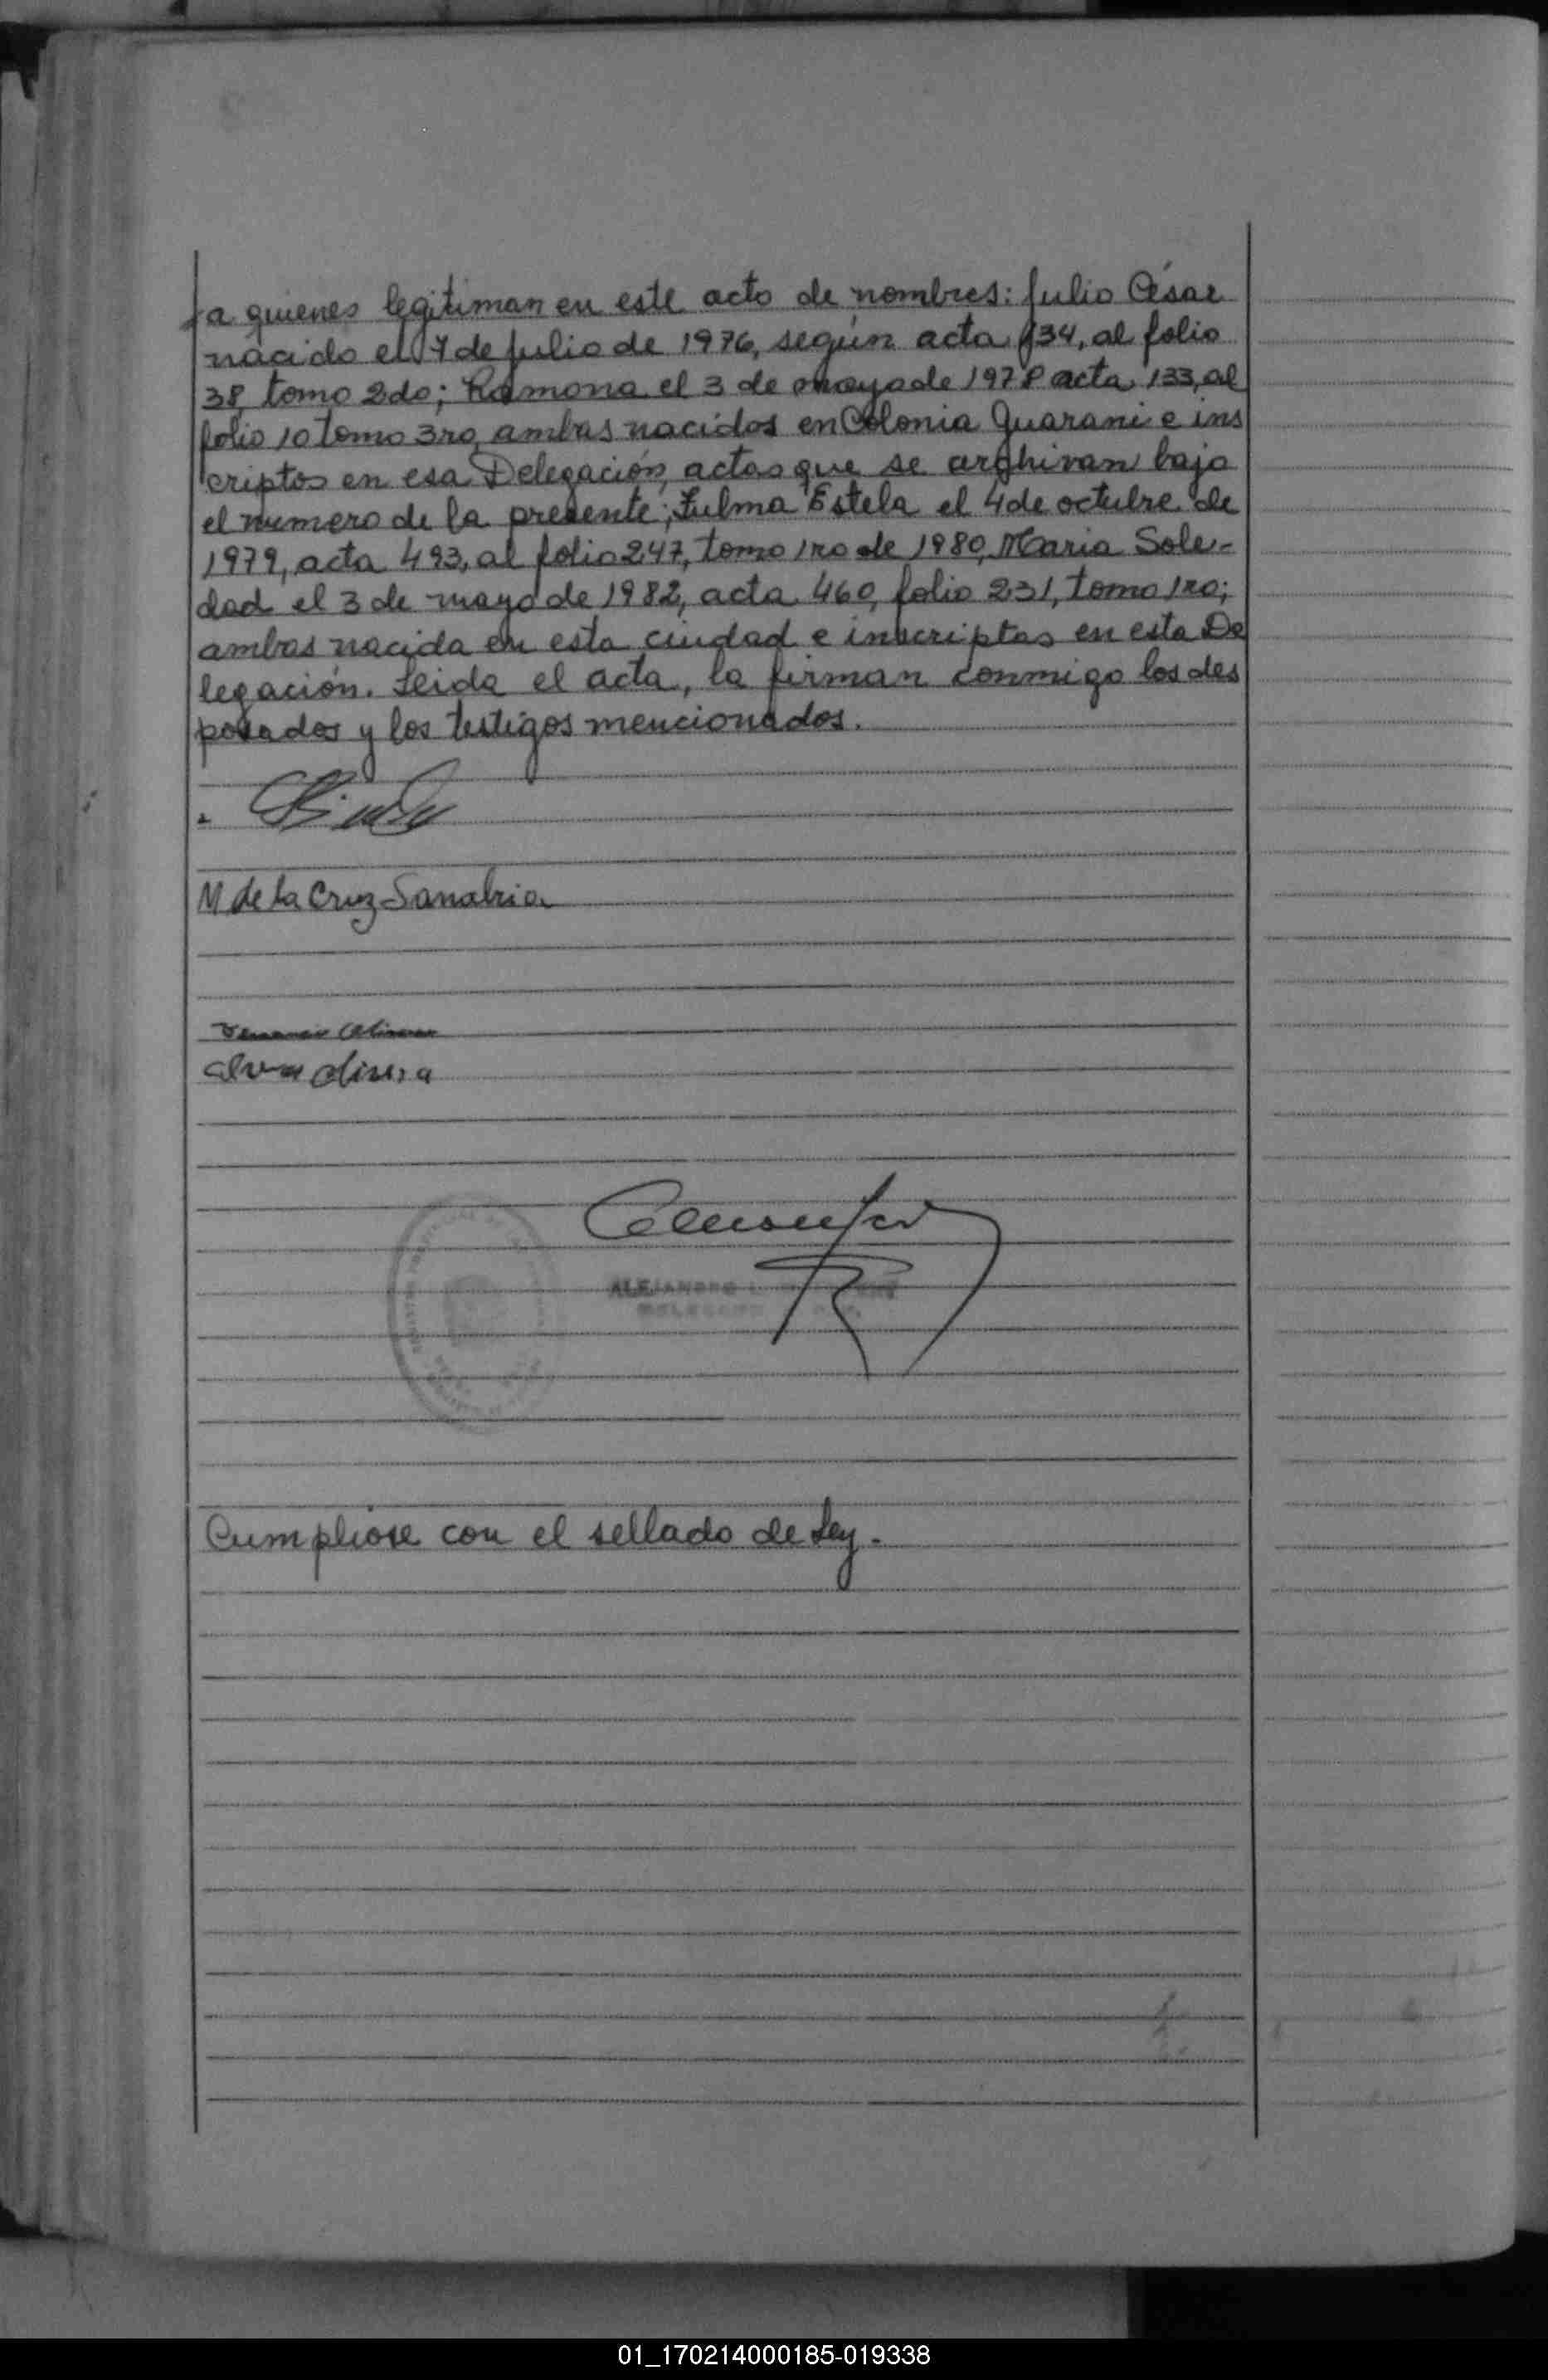 a quienes legitiman en este acto de nombres: Julio César
nacido el 7 de julio de 1976, según acta 134, al folio
38, tomo 2do; Ramona el 3 de mayo de 1978 acta 133, al
folio 10 tomo 3ro, ambas nacidos en Colonia Guarani e ins
criptos en esa Delegación, actas que se archivan bajo
el numero de la presente; Zulma Estela el 4 de octubre de
1979, acta 493, al folio 247, tomo 1ro de 1980, Maria Sole-
dad el 3 de mayo de 1982, acta 460, folio 231, tomo 1ro;
ambas nacida en esta ciudad e inscriptas en esta De
legación. Leida el acta, la firman conmigo los des
posados y los testigos mencionados.
M de la Cruz Sanabria
ALEJANDRO
Cumpliose con el sellado de Ley.
01_170214000185-019338